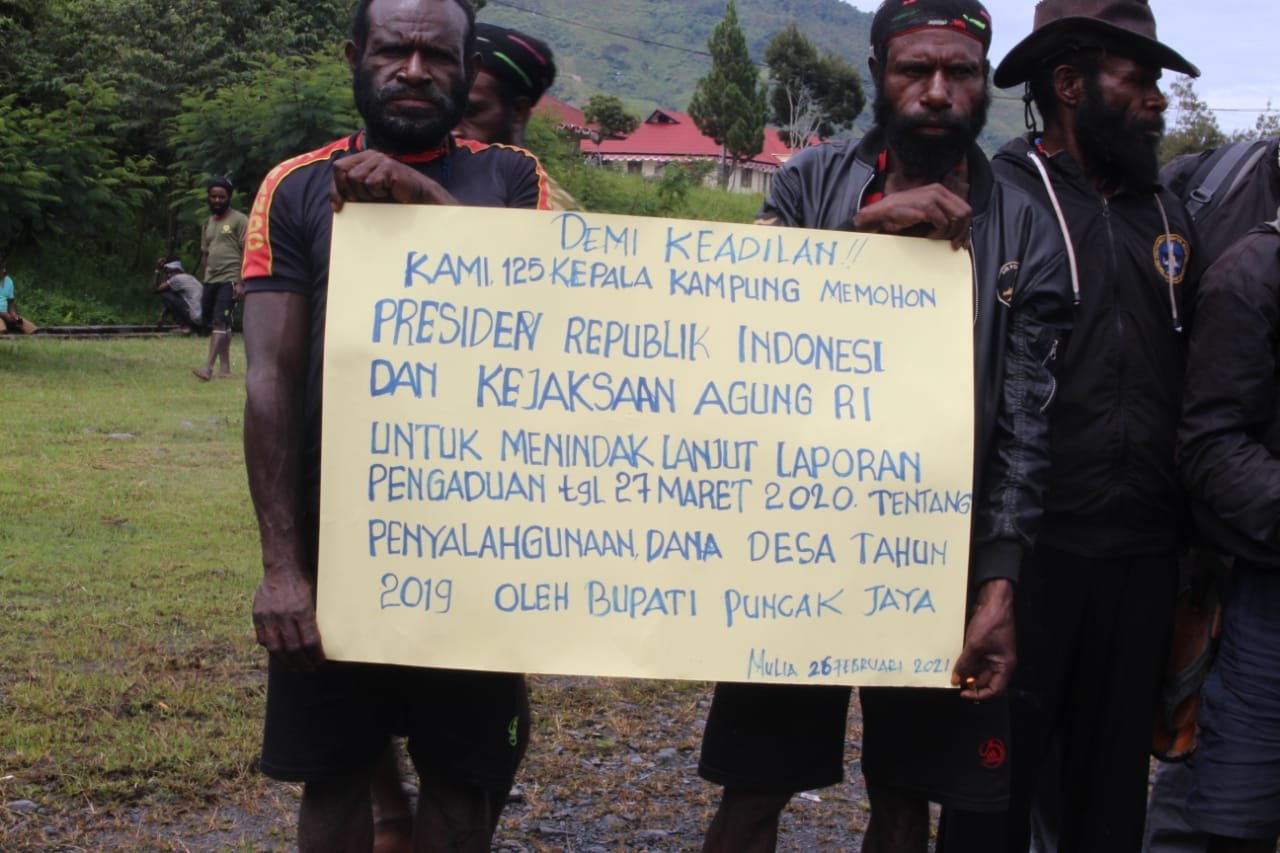 DEMI KEADILAN!!
KAMI, 125 KEPALA KAMPUNG MEMOHON
PRESIDEN REPUBLIK INDONESI
DAN KEJAKSAAN AGUNG RI
UNTUK MENINDAK LANJUT LAPORAN
PENGADUAN tgl 27 MARET 2020. TENTANG
PENYALAHGUNAAN, DANA DESA TAHUN
2019 OLEH BUPATI PUNCAK JAYA
MULIA 26 FEBRUARI 2021